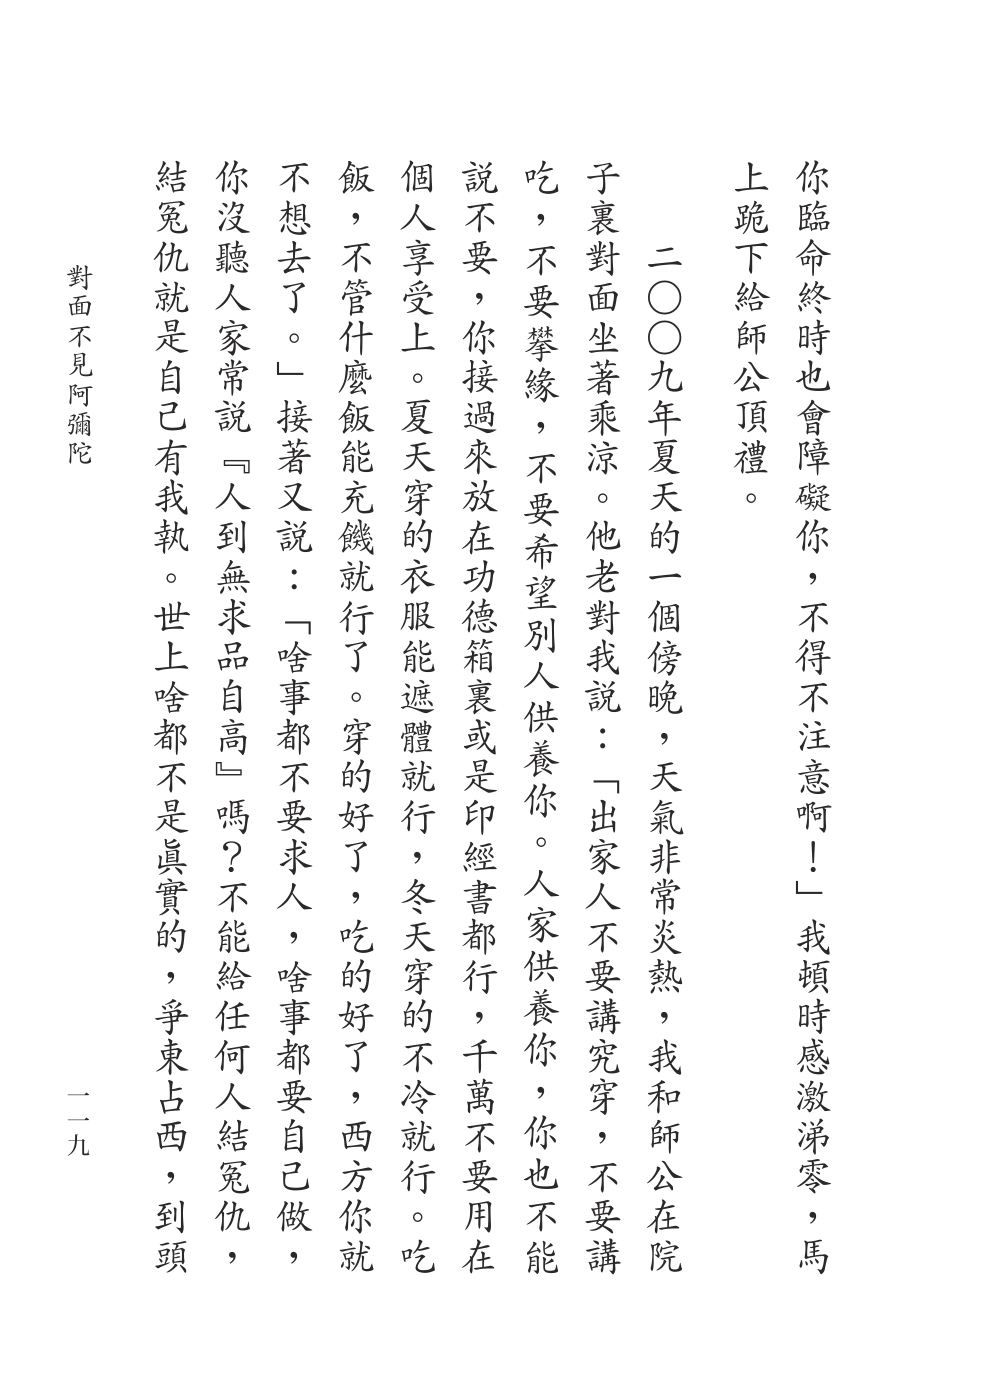 你臨命終時也會障礙你，不得不注意啊！」我頓時感激涕零，馬
上跪下給師公頂禮。
二〇〇九年夏天的一個傍晚，天氣非常炎熱，我和師公在院
子裏對面坐著乘涼。他老對我説：「出家人不要講究穿，不要講
吃，不要攀緣，不要希望別人供養你。人家供養你，你也不能
説不要，你接過來放在功德箱裏或是印經書都行，千萬不要用在
個人享受上。夏天穿的衣服能遮體就行，冬天穿的不冷就行。吃
飯，不管什麼飯能充饑就行了。穿的好了，吃的好了，西方你就
不想去了。」接著又説：「啥事都不要求人，啥事都要自己做，
你沒聽人家常説『人到無求品自高』嗎？不能給任何人結冤仇，
結冤仇就是自己有我執。世上啥都不是眞實的，爭東占西，到頭
對面不見阿彌陀
一一九